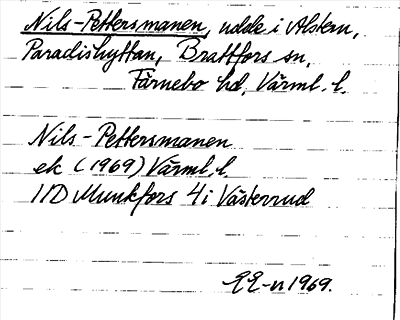 Nils-Pettersmanen, udde i Alstern,
Paradishyttan, Brattfors sn,
Färnebo hd, Värml. l.
Nils-Pettersmanen
ek (1969) Värml. l.
11D Munkfors 4 i Västerrud
EE-n 1969.